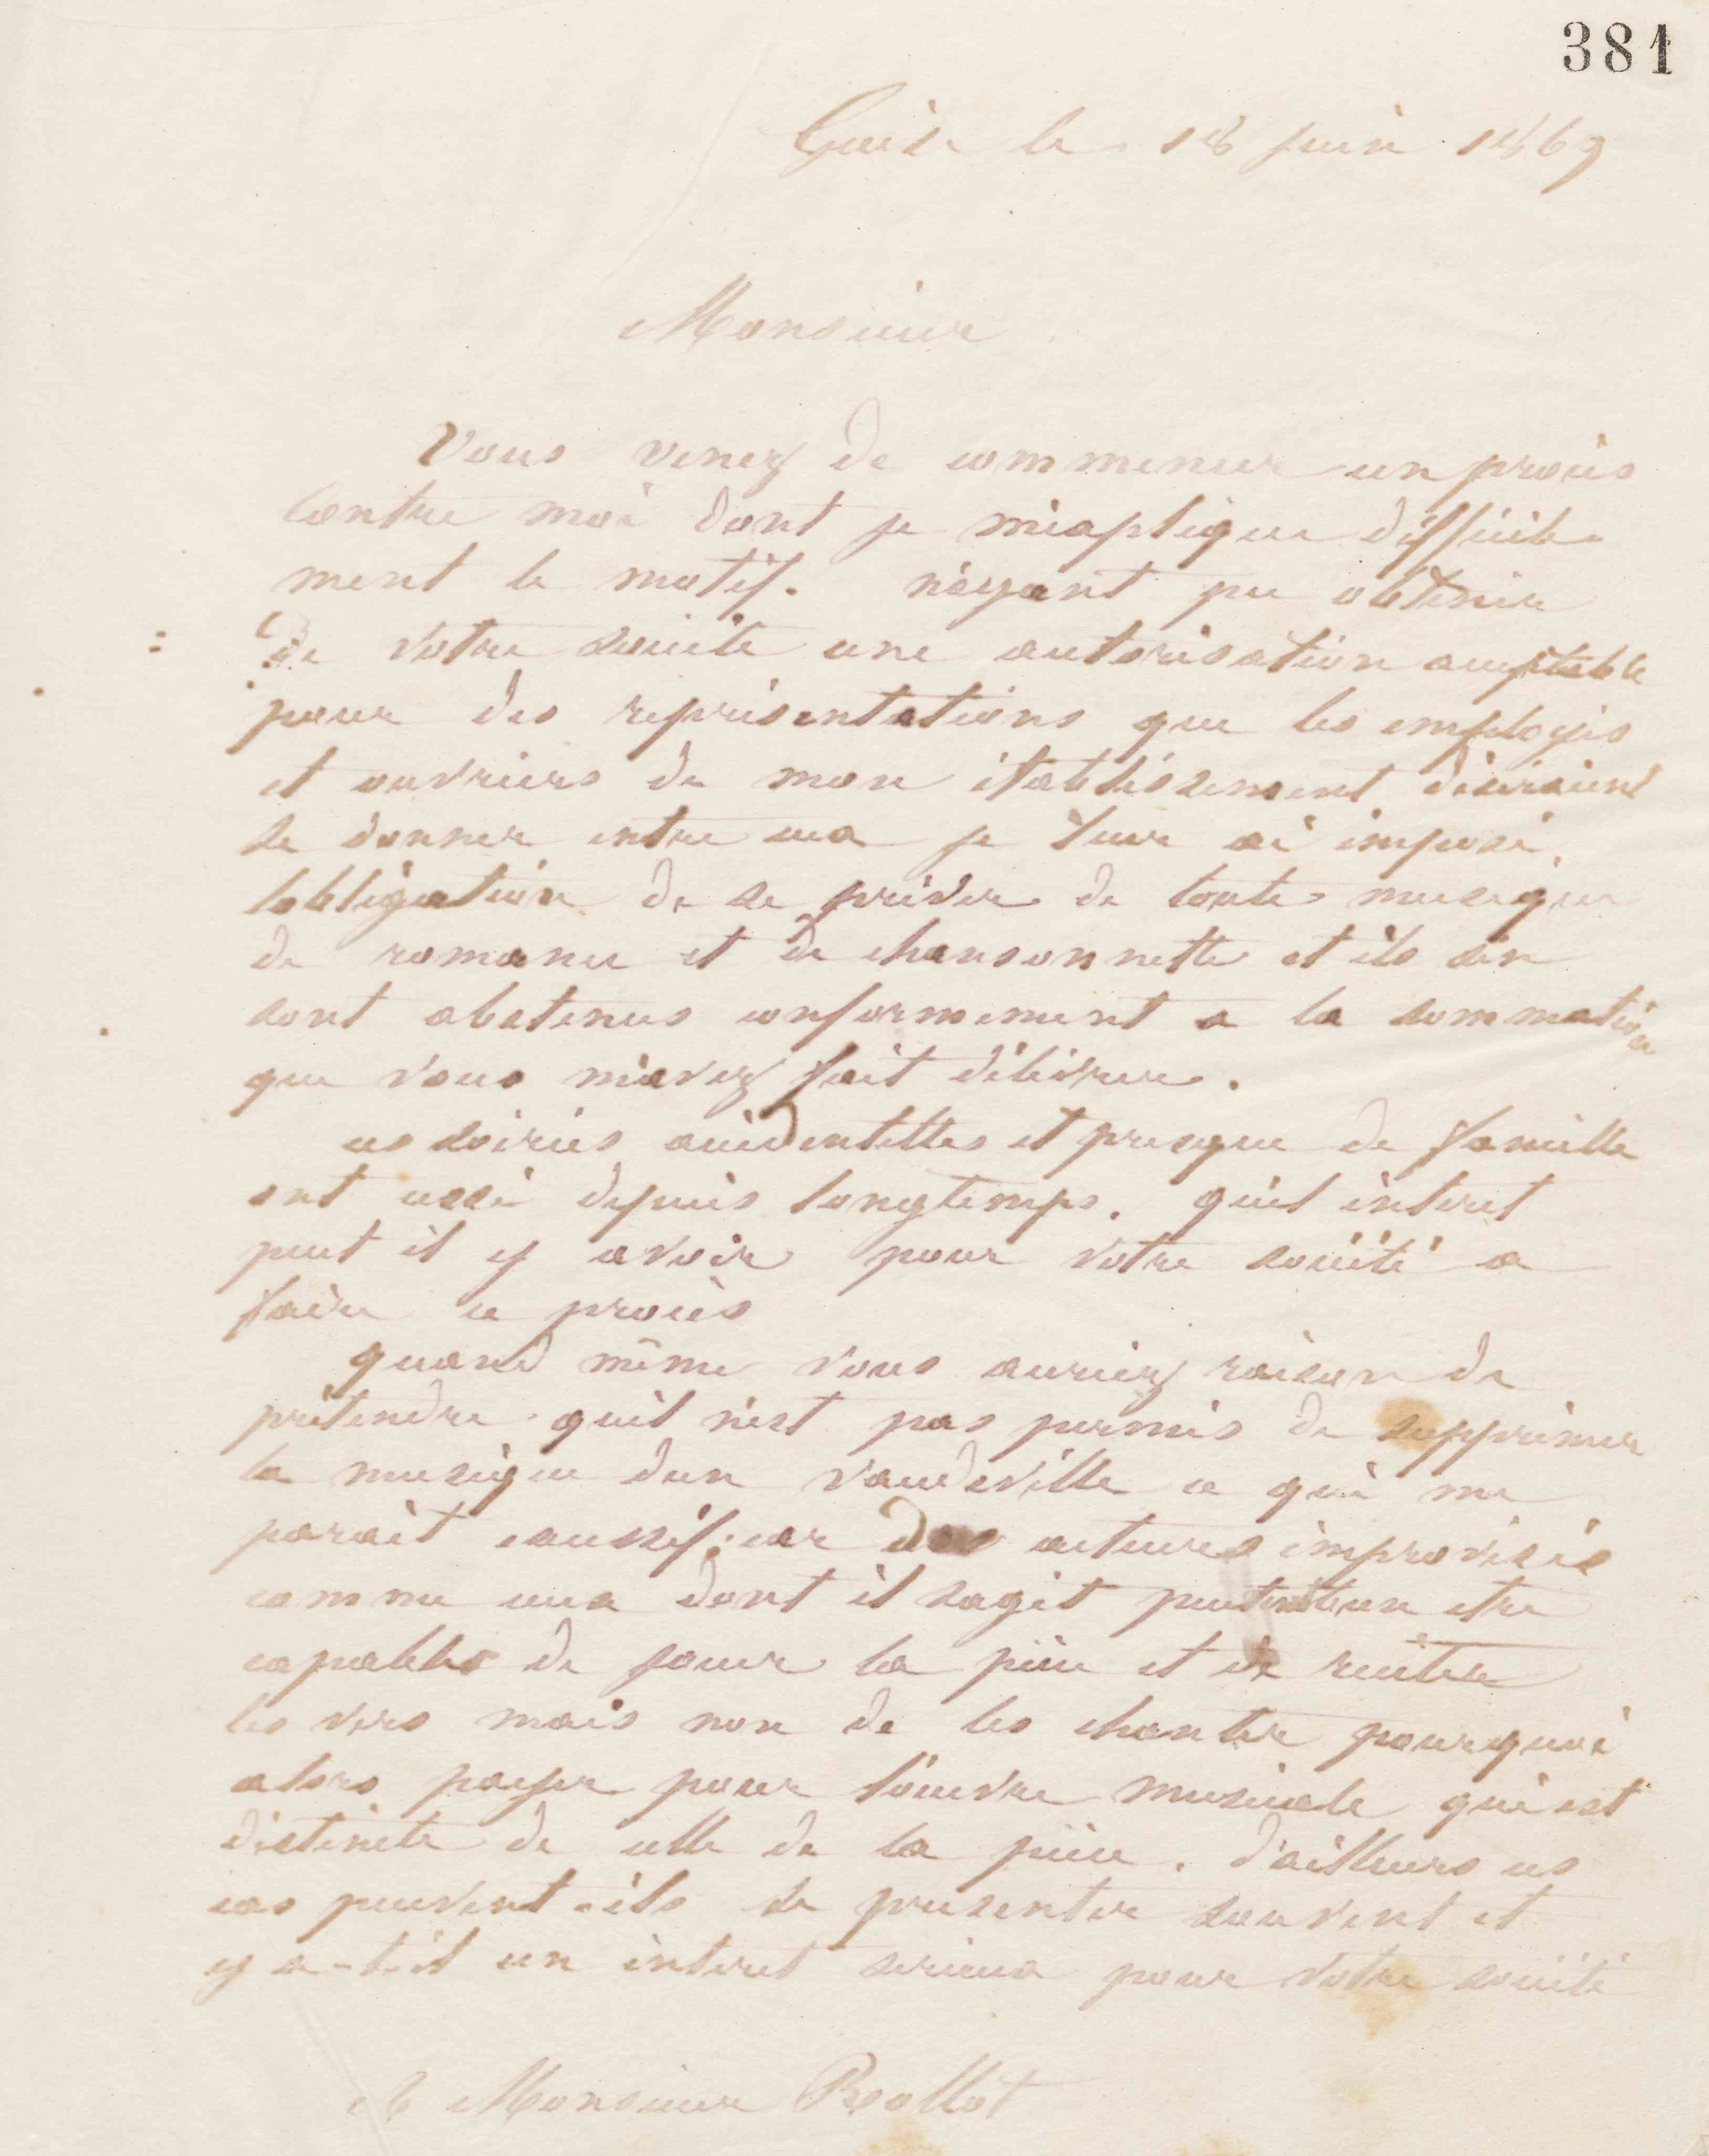 381
Guise le 18 juin 1869
Monsieur
Vous venez de commencer un procès
contre moi dont je m'explique difficile
ment le motif. n'ayant pu obtenir
de votre société une autorisation acceptable
pour des représentations que les employés
et ouvriers de mon établissement désiraient
se donner entre eux je leur ai imposé,
lobligation de se priver de toute musique
de romance et de chansonnette et ils sen
sont abstenus conformement a la sommation
que vous m'avez fait délivrer.
ces soirées accidentelles et presque de famille
ont cessé depuis longtemps. quel interet
peut il y avoir pour votre société a
faire ce procès
quand même vous auriez raison de
prétendre quil n'est pas permis de supprimer
la musique dun vaudeville ce qui me
parait excessif. car des acteurs improvisés
comme ceux dont il sagit peuvent etre
capables de jouer la pièce et de reciter
les vers mais non de les chanter pourquoi
alors payer pour l'œuvre musicale qui est
distincte de celle de la pièce. d'ailleurs ces
cas peuvent-ils se presenter souvent et
y a-t-il un interet serieux pour votre société
A Monsieur Rollot